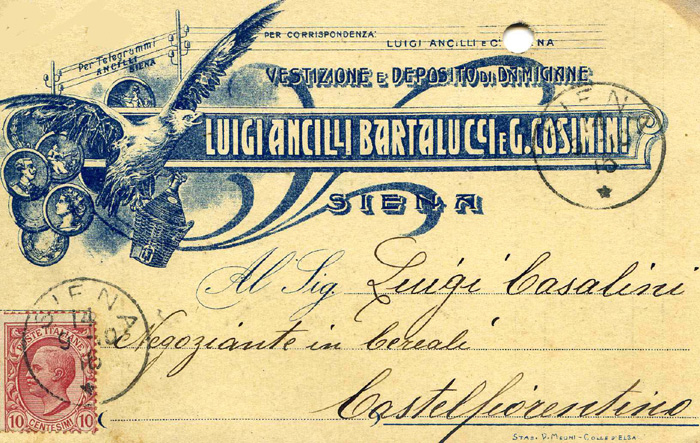 PER CORRISPONDENZA:
LUIGI ANCILLI E C. SIENA
Per Telegrammi
ANCILLI
SIENA
VESTIZIONE E DEPOSITO DI DAMIGIANE
LUIGI ANCILLI BARTALUCCI E G. COSIMINI
SIENA
SIENA
Al Sig Luigi Casalini
Negoziante in Cereali
Castelfiorentino
SIENA
POSTE ITALIANE
10 CENTESIMI 10
STAB. V. MEUNI - COLLE D'ELSA